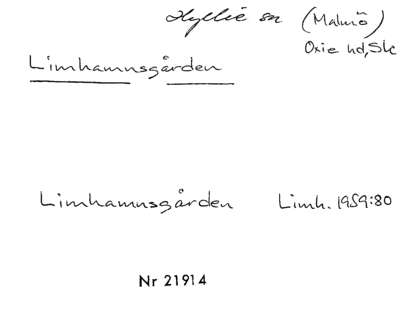 Hyllie sn (Malmö)
Oxie hd, Sk
Limhamnsgården
Limhamnsgården Limh. 1959:80
Nr 21914